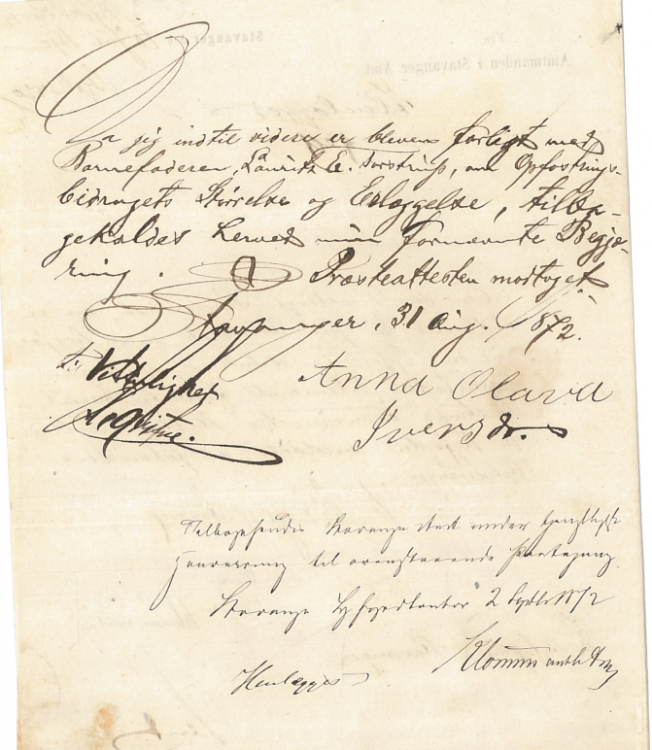 Da jeg indtil videre er bleven forligt med
Barnefaderen, Lauritz E. Torstrup, om Opfostrings-
bidragets Størrelse og Erlæggelse, tilba-
gekaldes herved min fornævnte Begjæ-
ring. Præsteattesten modtoget.
Stavanger, 31 Aug. 1872.
Anna Olava
Iversdr.
til Vitterlighed
Tilbagesendes Stavanger Amt under tjenstligst
Henvisning til ovenstaaende Paategning.
Stavanger Byfogedkontor 2 Septbr 1872
Henlægges